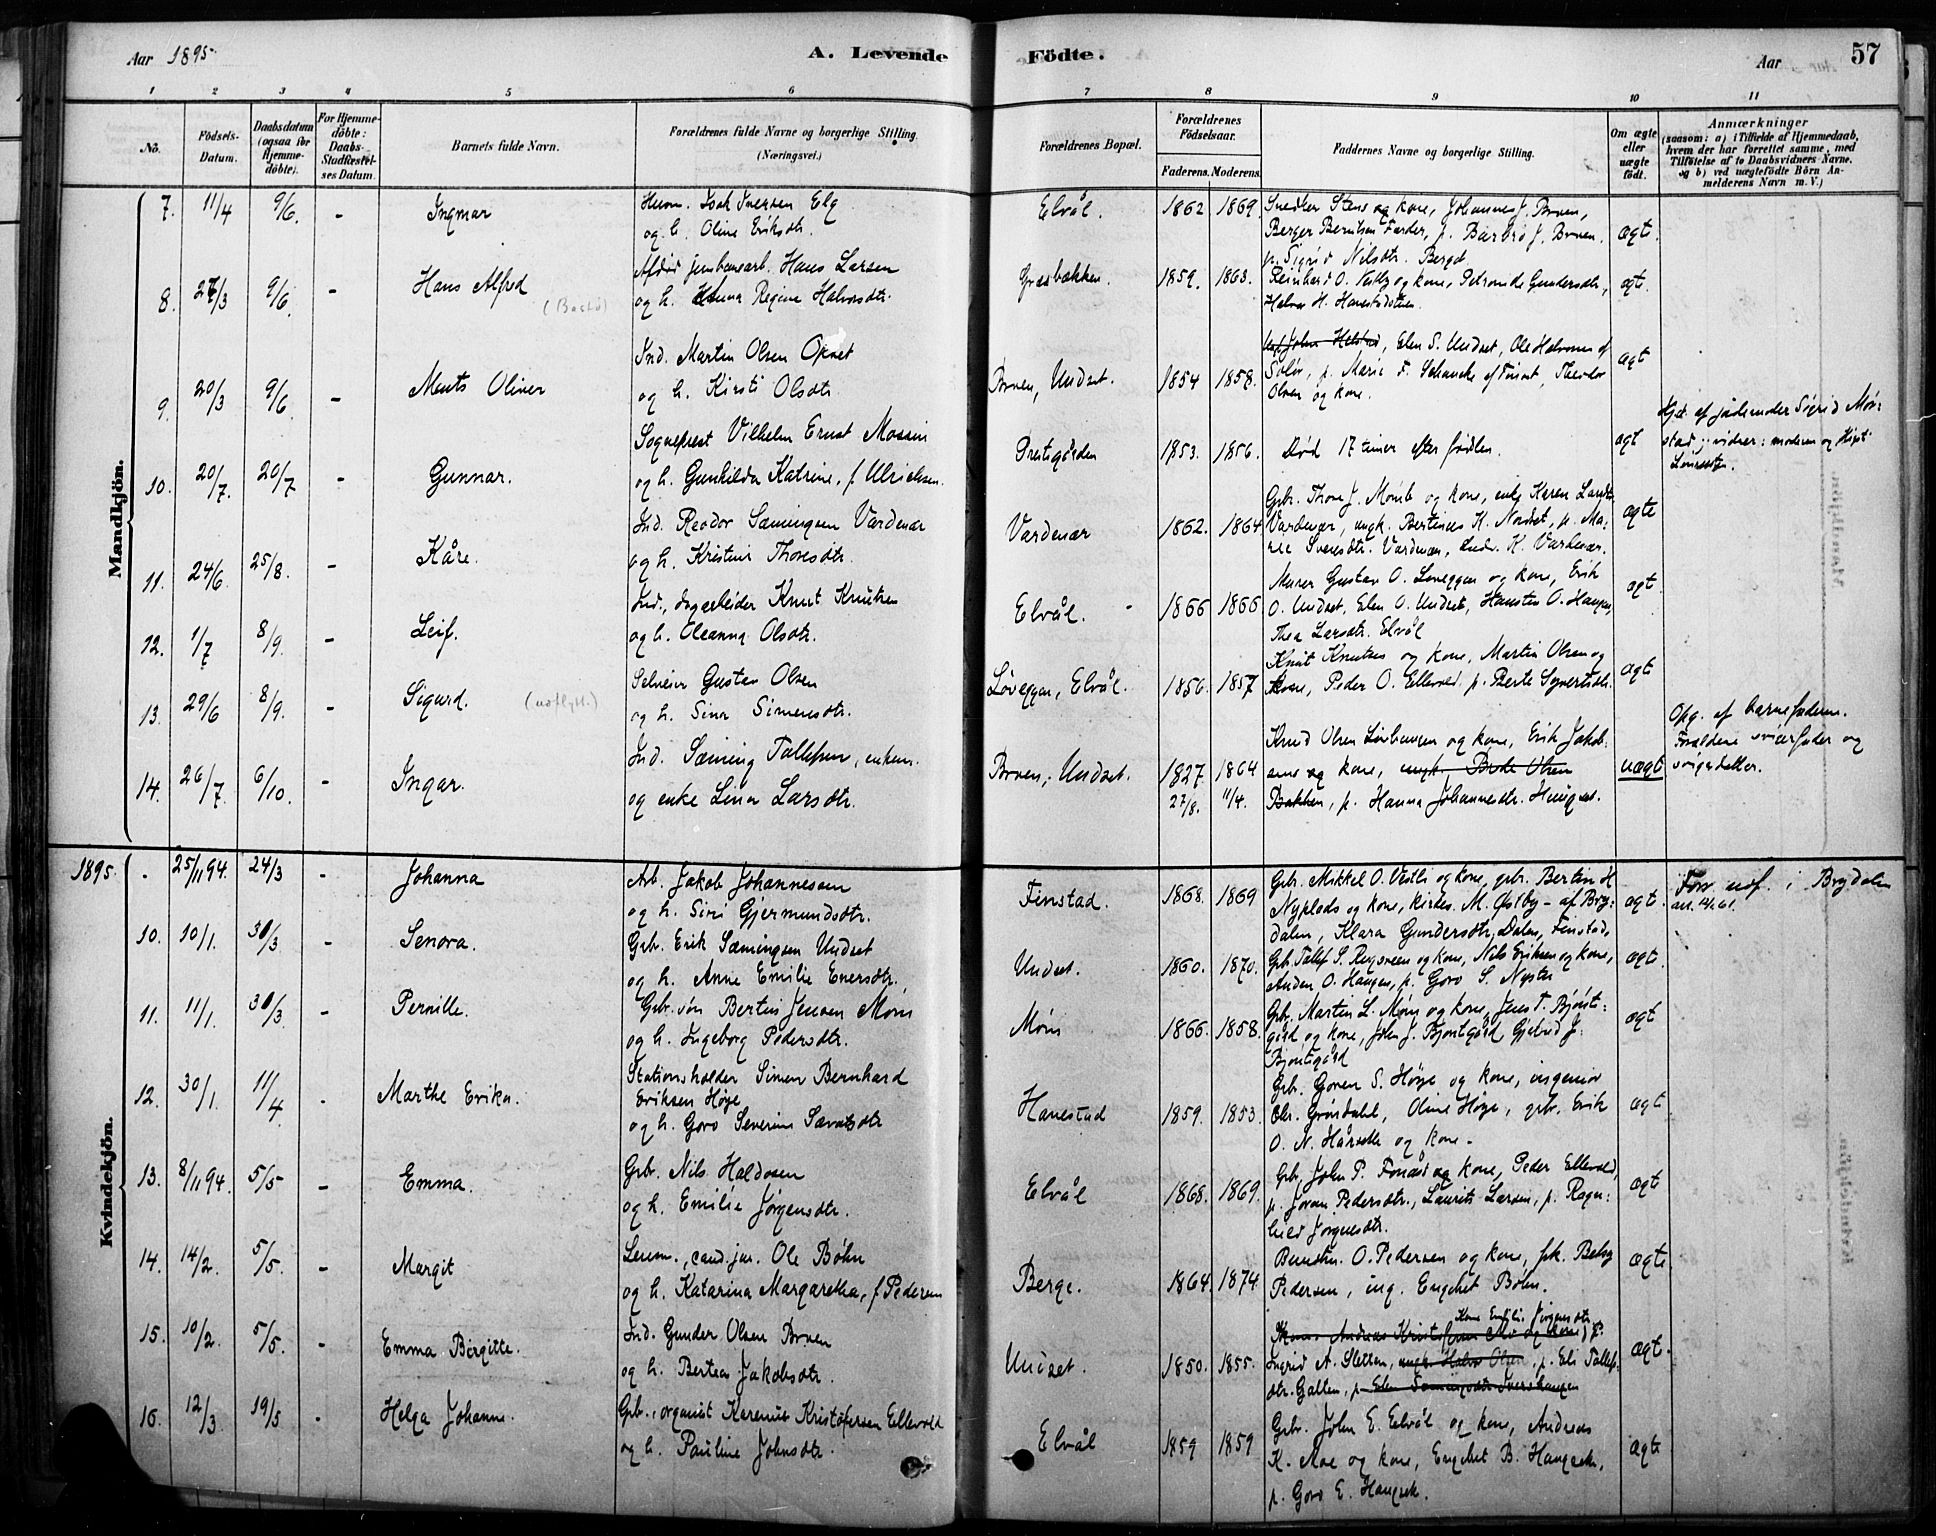 Aar 1895.
A. Levende Födte.
Aar
57
1 2 3 4 5 6 7 8 9 10 11
No.
Födsels-Datum.
Daabsdatum (ogsaa for Hjemme-döbte).
For Hjemme-döbte: Daabs-Stadfæstel-ses Datum.
Barnets fulde Navn.
Forældrenes fulde Navne og borgerlige Stilling. (Næringsvei.)
Forældrenes Bopæl.
Forældrenes Födselsaar.
Faderens. Moderens.
Faddernes Navne og borgerlige Stilling.
Om ægte eller uægte födt.
Anmærkninger
(saasom: a) i Tilfælde af Hjemmedaab, hvem der har forrettet samme, med Tilföielse af to Daabsvidners Navne, og b) ved uægtefödte Börn Anmelderens Navn m. V.)
Mandkjön.
7. 11/4 9/6. - Ingmar
Husm. Isak Iversen Elg
og h. Oline Eriksdtr.
Elvål. 1862 1869.
Snedker Stens og kone, Johannes J. Bruen,
Berger Berntsen Færder, p. Barbro J. Bruen.
p. Sigrid Nilsdtr. Berget
ægte.
8. 27/3 9/6. - Hans Alfred (Bastø)
Afdød jernbanearb. Hans Larsen
og h. Anna Regine Halvorsdtr.
Græsbækken. 1859. 1863.
Reinhard O. Vestby og kone, Petronede Gundersdtr,
Halvor H. Hanestadsteen
ægt.
9. 20/3 9/6 - Ments Oliver
Ind. Martin Olsen Opset
og h. Kirsti Olsdtr.
Bruen, Undset. 1854 1858.
John Helstad, Elen S. Undset, Ole Halvorsen af
Solør, p. Marie F. Schancke af Tinset, Theodor
Olsen og kone.
ægt
10. 20/7. 20/7 - Gunnar.
Sogneprest Vilhelm Ernst Mossin
og h. Gunhilda Katrine, f. Ulrichsen.
Prestegården 1853. 1856.
Død 17 timer efter fødslen.
ægt
Hjd. af jordemoder Sigrid Mor-
stad; vidner: moderen og
11. 24/6. 25/8. - Kåre.
Ind. Reodor Sæmingsen Vardenær
og h. Kristine Thoresdtr.
Vardenær 1862. 1864
Gbr. Thore J. Mømb og kone, enke Karen Larsdtr
Vardenær, ungk. Bertinus K. Nordset, p. Ma-
ree Sveresdtr. Vardenær, Andr. K. Vardenær.
ægte
12. 1/7 8/9. - Leif.
Ind., dagarbeider Knut Knutsen
og h. Oleanna Olsdtr.
Elvål. 1866 1866
Murer Gustav O. Løveggen og kone, Erik
O. Undset, Elen O. Undset, Hansten O. Haugen,
Thea Larsdtr. Elvål
ægt.
13. 29/6 8/9. - Sigurd. (udflytt.)
Selveier Gustav Olsen
og h. Sina Simensdtr.
Løveggen, Elvål. 1856. 1857
Knut Knutsen og kone, Martin Olsen og
kone, Peder O. Ellevold, p. Berte Syvertsdtr.
ægt
14. 26/7. 6/10. - Ingar.
Ind. Sæming Tallefsen, enkem.
og enke Lina Larsdtr.
Bruen, Undset. 1827. 27/8. 1864 11/4.
Knud Olsen Lindhaugen og kone, Erik Jakob-
sen og kone, ungk. Brede Olsen
Bakken, p. Hanna Johannesdtr. Haugset.
uægt
Opg. af barnefaderen.
Forældrene svigerfader og
svigerdatter.
Kvindekjön.
1895. - 25/11 94. 24/3 - Johanna
Arb. Jakob Johannessen
og h. Siri Gjermundsdtr.
Finstad. 1868. 1869
Gbr. Mikkel O. Vestli og kone, gbr. Bertin H
Nyplads og kone, kirkes. M. Østby - af Bry-
dalen, Klara Gundersdtr. Dalen, Finstad.
ægt.
Forr. udf. i Brydalen
10. 10/1. 31/3 - Senora.
Gbr. Erik Sæmingsen Undset
og h. Anne Emilie Enersdtr.,
Undset. 1860. 1870.
Gbr. Tallef S. Rugsveen og kone, Nils Eriksen og kone,
Anders O. Haugen, p. Goro S. Nystu
ægt.
11. 11/1. 31/3 - Pernille.
Gbr.søn Bertin Jensen Møm
og h. Ingeborg Pedersdtr.
Møm 1866. 1858.
Gbr. Martin L. Møm og kone, Jens T. Bjønt-
gård og kone, John J. Bjøntgård, Gjertrud J.
Bjøntgård
ægt
12. 30/1. 11/4 - Marthe Erika.
Stationsholder Simen Bernhard
Eriksen Høye
og h. Goro Severine Sævatsdtr
Hanestad 1859. 1853.
Gbr. Goren S. Høye og kone, ingeniør
Chr. Grøndahl, Oline Høye, gbr. Erik
O. N. Hårsetle og kone.
ægt
13. 8/11 94. 5/5 - Emma.
Gbr. Nils Haldosen
og h. Emilie Jørgensdtr.
Elvål 1868. 1869.
Gbr. John P. Fonås og kone, Peder Ellevold,
p. Joran Pedersdtr., Laurits Larsen, p. Ragn-
hild Jørgensdtr.
ægte
14. 14/2. 5/5. - Margit
Lensm., cand. jur. Ole Bøhn
og h. Katarina Margaretha, f. Pedersen
Berge. 1864. 1874.
O. Pedersen og kone, frk. Betsy
Pedersen, ing. Engebret Bøhn.
ægte
15. 10/2. 5/5. - Emma Birgitte.
Ind. Gunder Olsen Bruen
og h. Bertea Jakobsdtr.
Undset. 1850. 1855.
Kone Emilie Jørgensdtr.
Andreas Kristofersen Mo og kone, p.
Ingrid A. Sletten, ungk. Halvor Olsen, p. Eli Tallefs-
dtr. Galten, p. Elen Sæmingsdtr. Sverthaugen
ægt.
16. 12/3 19/5 - Helga Johanne.
Gbr., organist Karenus Kristofersen Ellevold
og h. Pauline Johnsdtr.
Elvål 1859 1859
Gbr. John E. Elvål og kone, Andreas
K. Moe og kone, Engebret B. Haugseth,
p. Goro E. Haugseth.
ægte